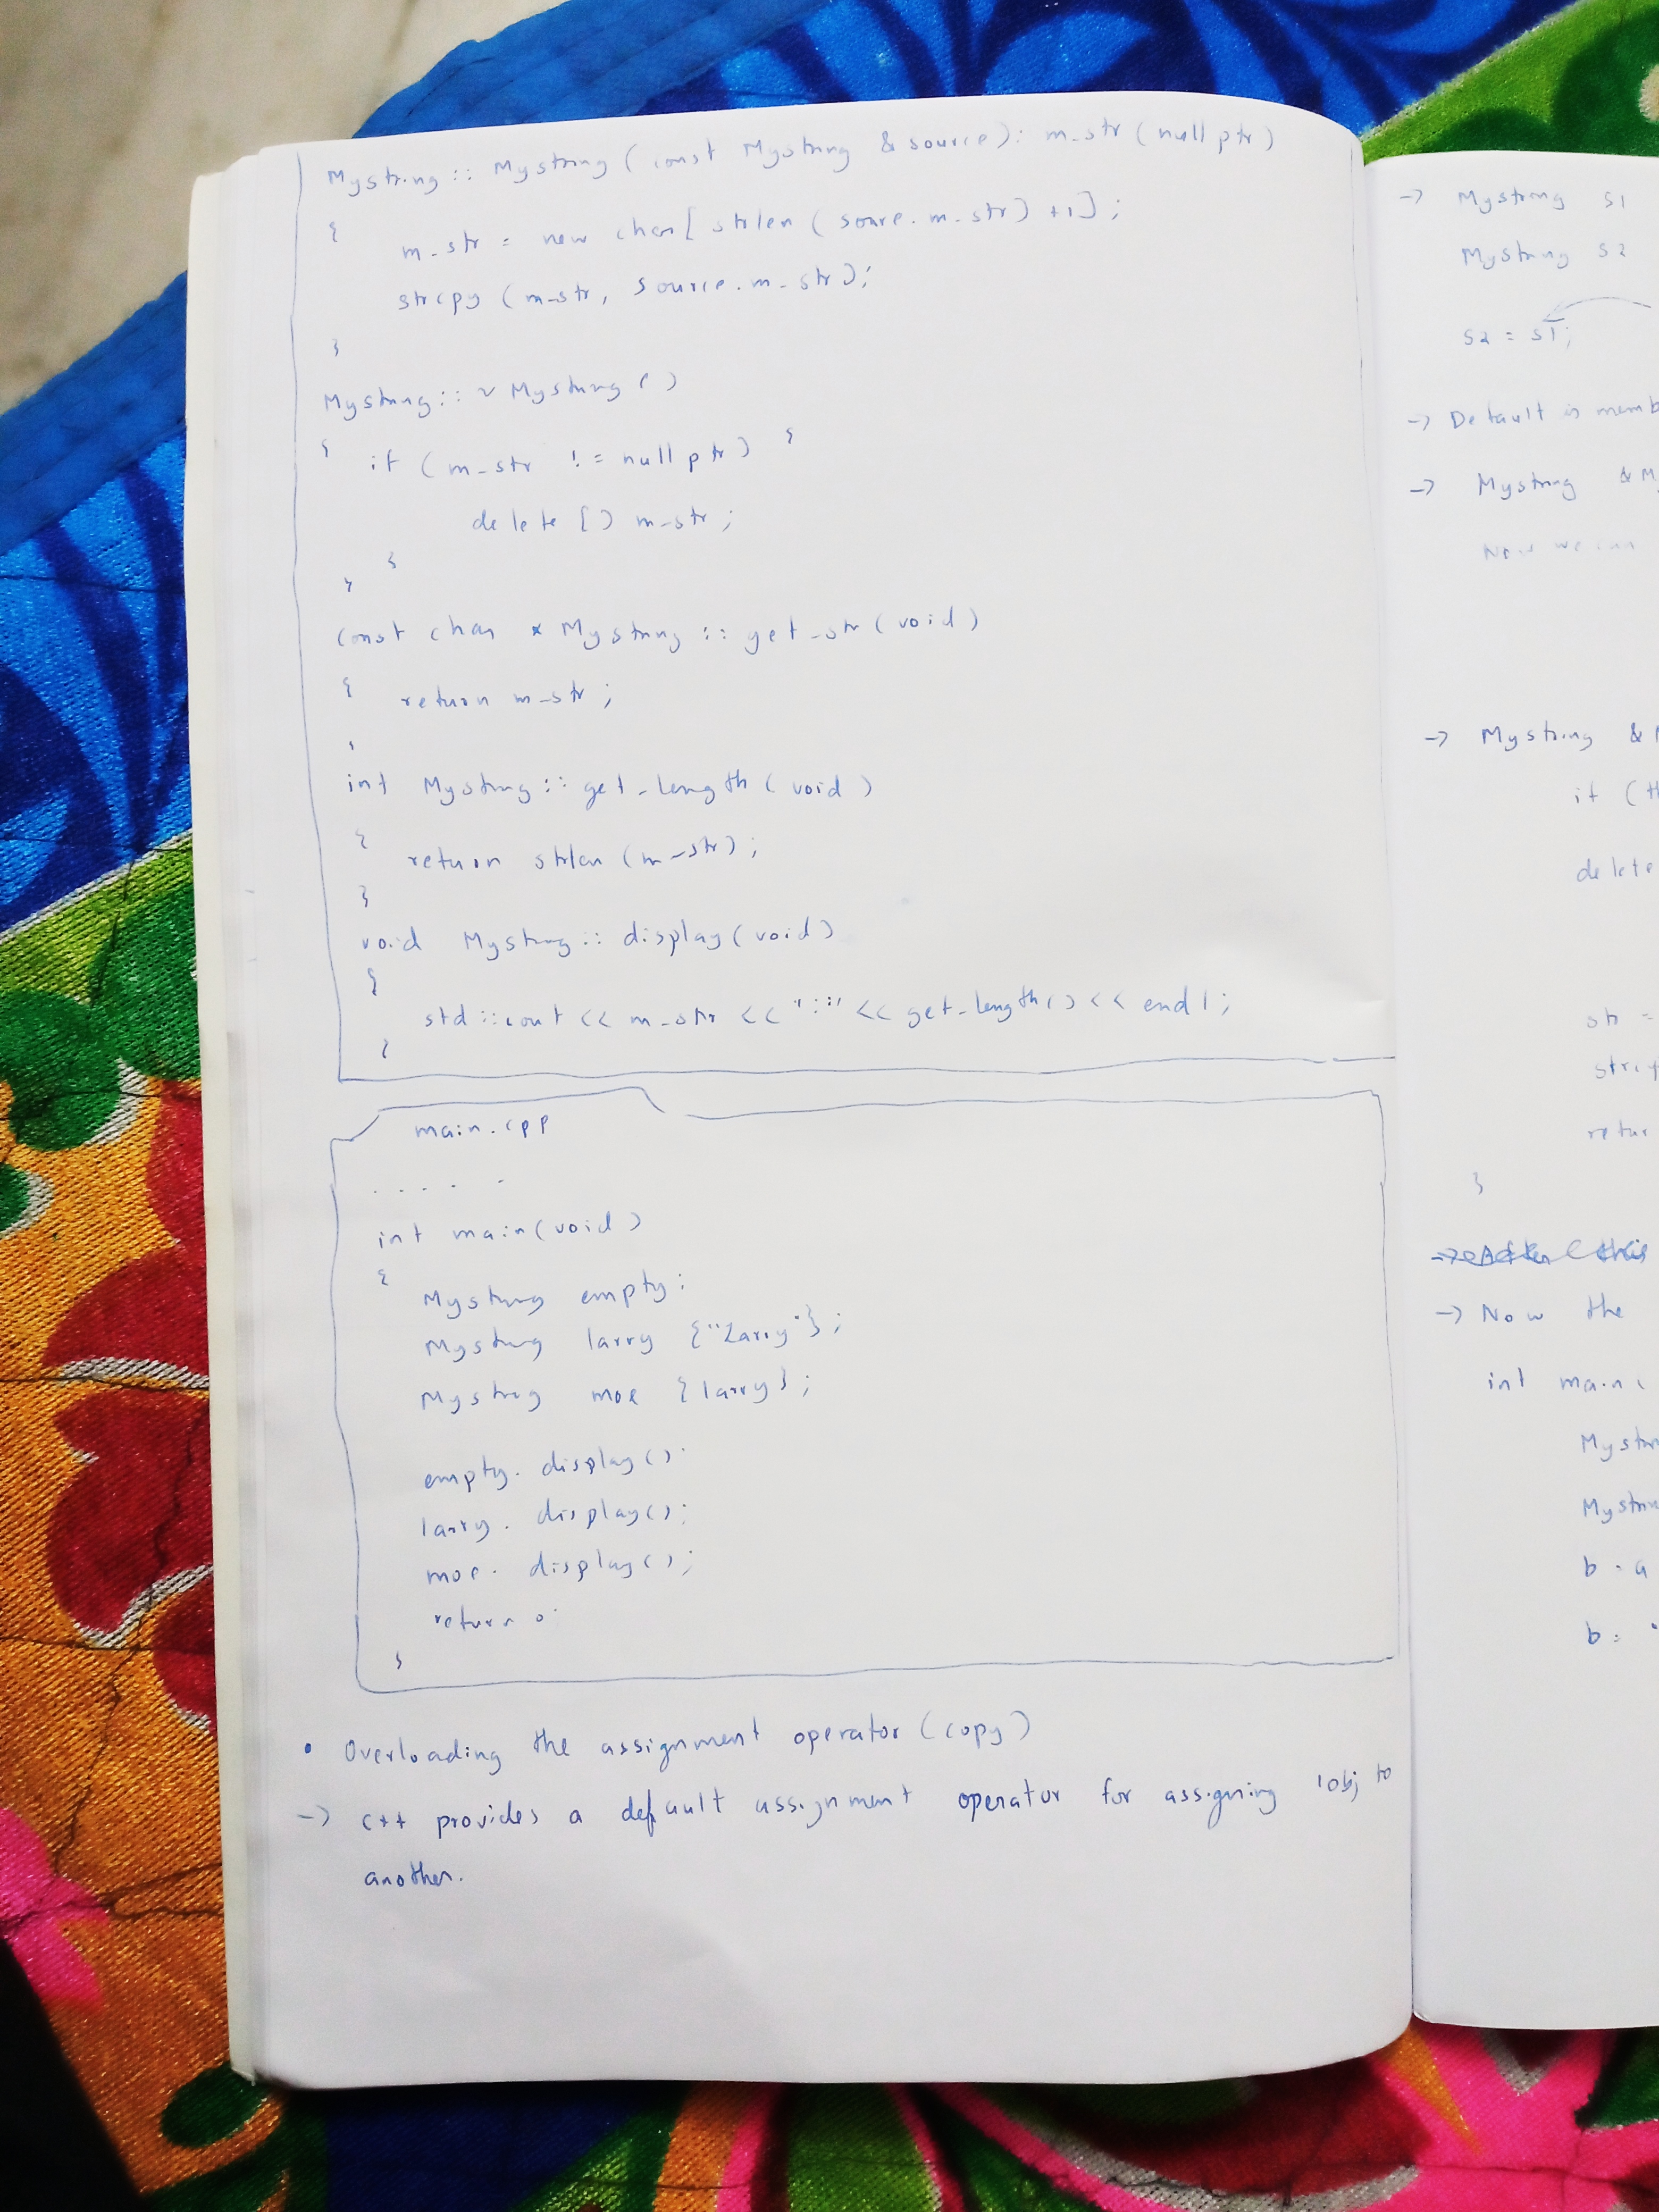 Mystring :: Mystring ( const Mystring & source) : m_str ( nullptr )
{
m_str = new char [ strlen ( source.m_str) +1] ;
strcpy ( m_str, source.m_str);
}
Mystring :: ~ Mystring ( )
{ if ( m_str != nullptr ) {
delete [] m_str ;
}
}
const char * Mystring :: get_str ( void )
{ return m_str ;
}
int Mystring :: get_length ( void )
{ return strlen ( m_str) ;
}
void Mystring :: display ( void )
{
std :: cout << m_str << ":" << get_length() << endl ;
}
main.cpp
. . . . .
int main(void)
{
Mystring empty;
Mystring larry {"Larry"} ;
Mystring moe {larry} ;
empty. display();
larry. display();
moe. display();
return 0;
}
• Overloading the assignment operator (copy)
-> C++ provides a default assignment operator for assigning 1obj to
another.
-> Mystring s1
Mystring s2
s2 = s1;
-> Default is memb
-> Mystring & My
Now we can
-> Mystring &
if (th
delete
str =
strcp
retur
}
-> Now the
int main (
Mystrin
Mystrin
b = a
b =